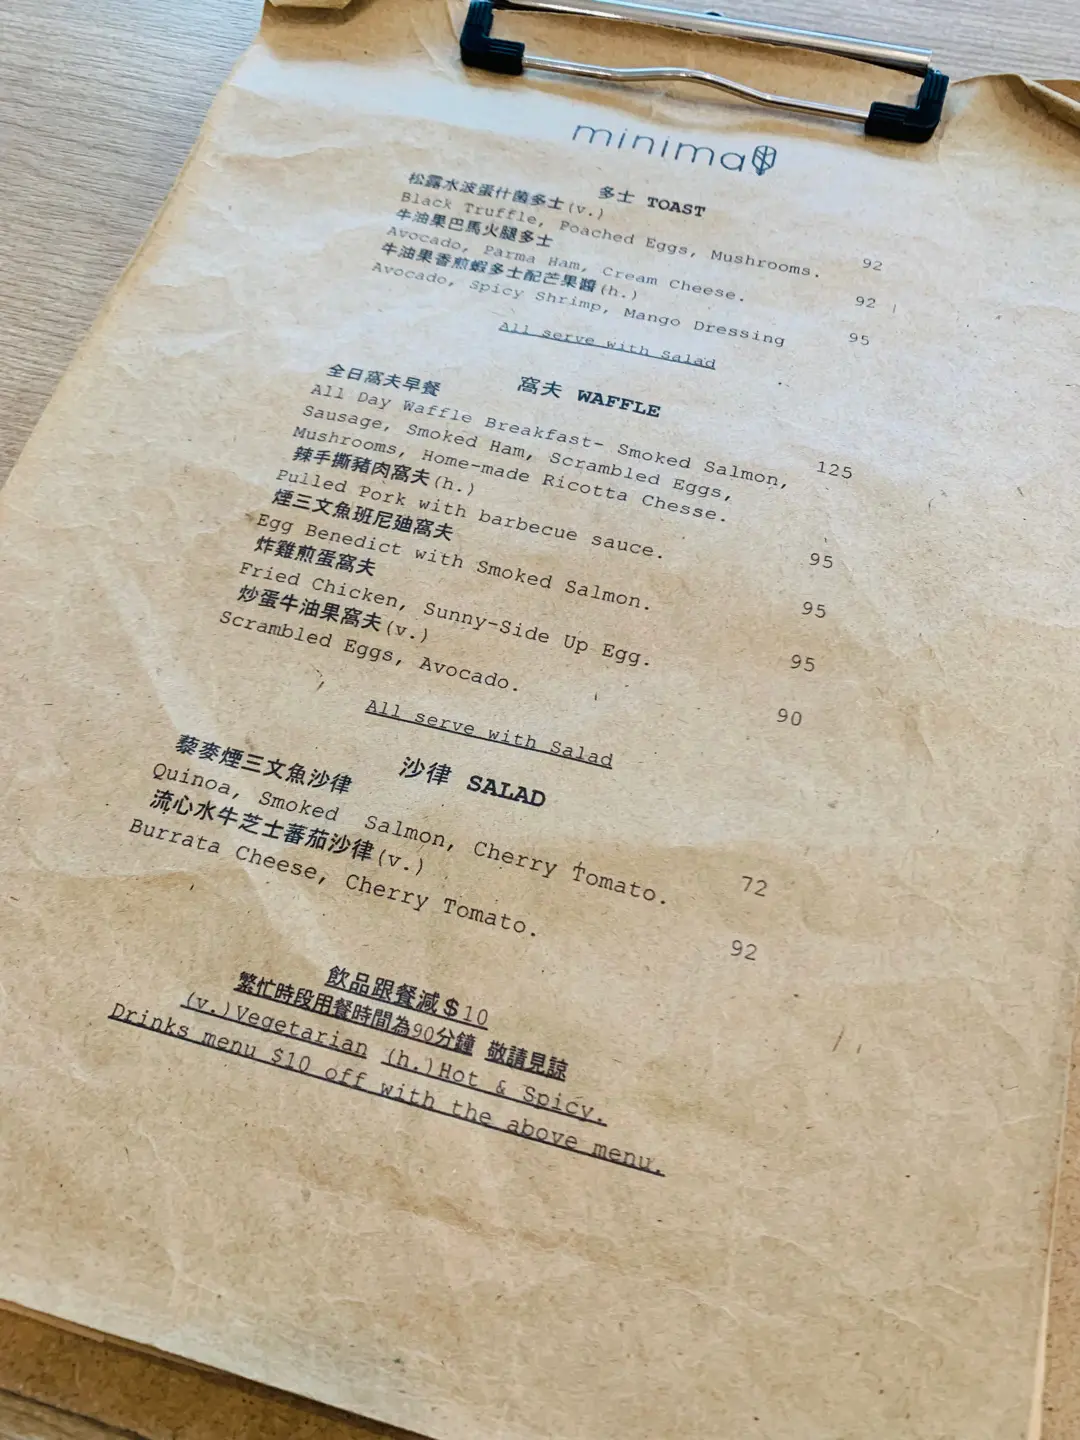 minima
多士 TOAST
松露水波蛋什菌多士(v.)
Black Truffle, Poached Eggs, Mushrooms. 92
牛油果巴馬火腿多士
Avocado, Parma Ham, Cream Cheese. 92
牛油果香煎蝦多士配芒果醬(h.)
Avocado, Spicy Shrimp, Mango Dressing 95
All serve with Salad
窩夫 WAFFLE
全日窩夫早餐
All Day Waffle Breakfast- Smoked Salmon, 125
Sausage, Smoked Ham, Scrambled Eggs,
Mushrooms, Home-made Ricotta Chesse.
辣手撕豬肉窩夫(h.)
Pulled Pork with barbecue sauce. 95
煙三文魚班尼廸窩夫
Egg Benedict with Smoked Salmon. 95
炸雞煎蛋窩夫
Fried Chicken, Sunny-Side Up Egg. 95
炒蛋牛油果窩夫(v.)
Scrambled Eggs, Avocado. 90
All serve with Salad
沙律 SALAD
藜麥煙三文魚沙律
Quinoa, Smoked Salmon, Cherry Tomato. 72
流心水牛芝士蕃茄沙律(v.)
Burrata Cheese, Cherry Tomato. 92
飲品跟餐減$10
繁忙時段用餐時間為90分鐘 敬請見諒
(v.)Vegetarian (h.)Hot & Spicy.
Drinks menu $10 off with the above menu.